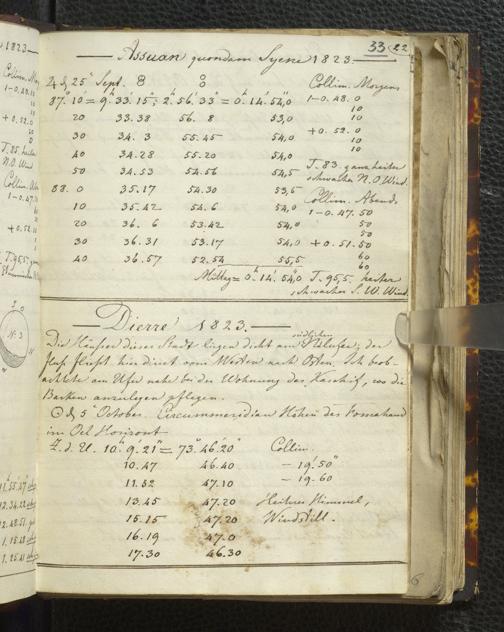 33 22
Assuan quondam Syene 1823.
♃ d. 25ᵗ Sept. Collim. Morgens
87° 10' = 9ʰ 33' 15"; 2ʰ 56' 33" = 0ʰ 14' 54,0 1-0. 48. 0
20 33.38 56. 8 53,0 10
10
30 34. 3 55.45 54,0 +0. 52. 0
10
40 34.28 55.20 54,0 10
50 34.53 54.56 54,5 T. 83. ganz heiter
schwacher N. O Wind.
88. 0 35.17 54.30 53,5 Collim. Abends.
10 35.42 54. 6 54,0 1-0. 47. 50
20 36. 6 53.42 54,0 50
50
30 36.31 53.17 54,0 +0. 51. 50
40 36.57 52.54 55,5 60
60
Mittag = 0ʰ 14' 54,0 T. 95,5. heiter
schwacher S. W. Wind.
Dierre 1823.
südlichen
Die Häuser dieser Stadt liegen dicht am Nilufer; der
Fluss fliesst hier direct von Westen nach Osten. Ich beob-
achtete am Ufer nahe bei der Wohnung des Kaschif, wo die
Barken anzulegen pflegen.
☉ d. 5ᵗ October. Circummeridian Höhen des Fomahand
im Oel Horizont
Z. d. U. 10ʰ 9' 21" = 73° 46' 20" Collim.
10.47 46.40 - 19' 50"
11.52 47.10 - 19. 60
13.45 47.20 Heiterer Himmel,
15.15 47.20 Windstill.
16.19 47.0
17.30 46.30
1823.
T. 85. heiter
N. O. Wind
N 3